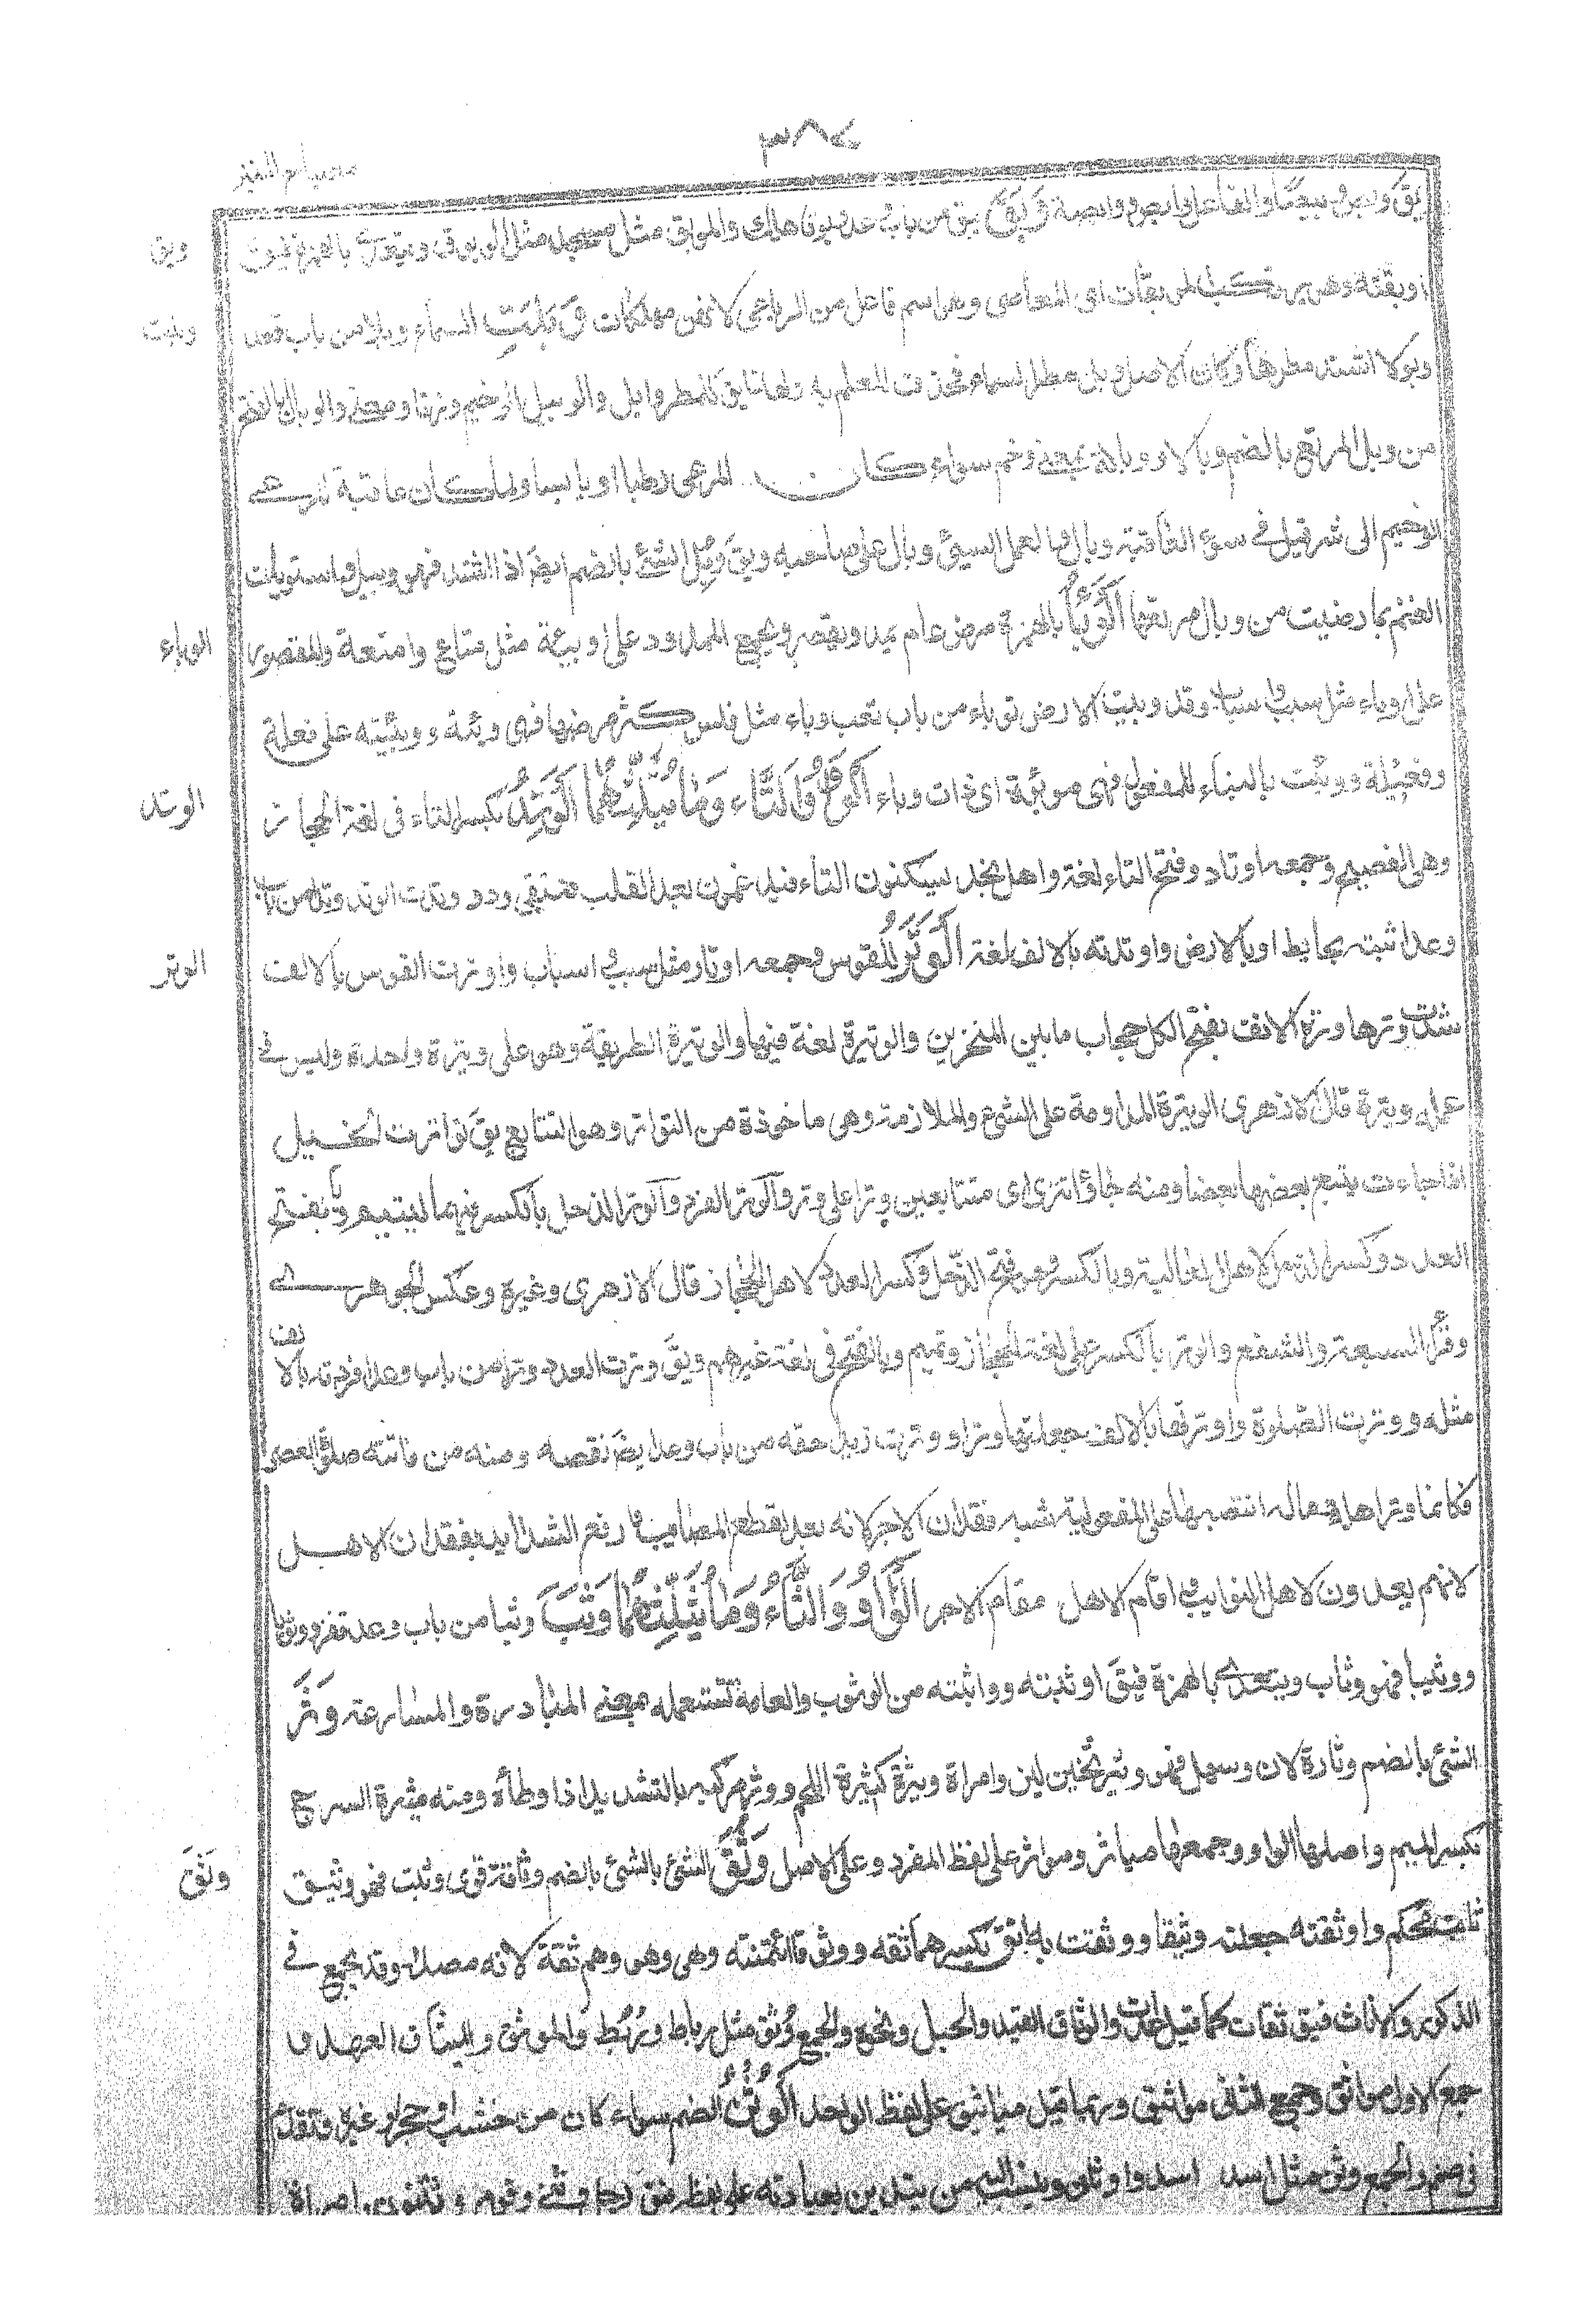 ٣٨٧
مصباح المنير
وَبَقَ يبق من باب وعد وبوقا هلك والموبق مثل مسجد مثل الوبوق ويتعدى بالهمزة فيق
وبق
اوبقته وهو يرتكب الموبقات اى المعاصى وهى اسم فاعل من الرباعى لانهن مهلكات وَبَلَتِ السماء وبلا من باب وعد
وبلت
وبولا اشتد مطرها وكان الاصل وبل مطر السماء فحذف للعلم به ولهذا يق للمطر وابل والوبيل الوخيم وزنا ومعنى والوبال بالفتح
من وبل المرتع بالضم وبالا ووبالة بمعنى وخم سواء كان المرعى رطبا او يابسا ولما كان عاقبة المرعى
الوخيم الى شر قيل فى سوء العاقبة وبال والعمل السيئ وبال على صاحبه ويق وَبُلَ الشئ بالضم ايضا اذا اشتد فهو وبيل واستوبلت
الغنم تمارضت من وبال مرتعها اَلْوَبَاُ بالهمزة مرض عام يمد ويقصر ويجمع الممدود على اوبية مثل متاع وامتعة والمقصور
الوباء
على اوباء مثل سبب واسباب وقد وبئت الارض توباء من باب تعب وباء مثل فلس كثر مرضها فهى وبئة ووبيئة على فعلة
وفعيلة ووبئت بالبناء للمفعول فهى موبؤة اى ذات وباء اَلْوَاوُ وَالتَّاء وَمَا يُثَلِّثُهُمَا اَلْوَتِدُ بكسر التاء فى لغة الحجاز
الوتد
وهى الفصحى وجمعه اوتاد وفتح التاء لغة واهل نجد يسكنون التاء فيدغمون بعد القلب فيبقى ود ووتدت الوتد وتدا من باب
وعد اثبته بحايط او بالارض واوتدته بالالف لغة اَلْوَتَرُ للقوس وجمعه اوتار مثل سبب واسباب واوترت القوس بالالف
الوتر
شددت وترها ووترة الانف بفتح الكل حجاب ما بين المنخرين والوتيرة لغة فيها والوتيرة الطريقة وهو على وتيرة واحدة وليس فى
عمله وتيرة قال الازهرى الوتيرة المداومة على الشئ والملازمة وهى ماخوذة من التواتر وهو التتابع يق تواترت الخيل
اذا جاءت يتبع بعضها بعضا ومنه جاؤا تترى اى متتابعين وترا على وتر والوتر الفرد والوتر الذحل بالكسر فيهما لتميم وبفتح
العدد وكسر الذحل لاهل العالية وبالكسر وهو فتح الذحل وكسر العدد لاهل الحجاز قال الازهرى وغيره وعكس الجوهرى
وقرأ السبعة والشفع والوتر بالكسر على لغة الحجاز وتميم وبالفتح فى لغة غيرهم ويق وترت العدد وترا من باب وعد افردته بالالف
مثله ووترت الصلوة واوترتها بالالف جعلتها وترا ووترت زيدا حقه من باب وعد ايضا نقصه ومنه من فاتته صلوة العصر
فكانما وتر اهله وماله انتصبهما على المفعولية شبه فقدان الاجر لانه يعد لقطع المصاعب ودفع الشدايد بفقدان الاهل
لانهم يعدون لاهل النوايب فاقام الاهل مقام الاجر اَلْوَاوُ وَالثَّاءُ وَمَا يُثَلِّثُهُمَا وَثَبَ وثبا من باب وعد قفز ووثوبا
ووثيبا فهو وثاب ويتعدى بالهمزة فيق اوثبته وواثبته من الوثوب والعامة تستعمله بمعنى المبادرة والمسارعة وَثُرَ
الشئ بالضم وثارة لان وسهل فهو وثير ثخين لين وامراة وثيرة كثيرة اللحم ووثر مركبه بالتشديد اذا وطأه ومنه ميثرة السرج
بكسر الميم واصلها الواو وجمعها مياثر ومواثر على لفظ المفرد وعلى الاصل وَثُقَ الشئ بالشئ بالضم وثاقة قوى وثبت فهو وثيق
وَثَقَ
ثابت محكم واوثقته جعلته وثيقا ووثقت به اثق بكسرهما ثقه ووثوقا ائتمنته وهى وهو وهم ثقة لانه مصدر وقد يجمع فى
الذكور والاناث فيق ثقات كما قيل عدات والوثاق القيد والحبل ونحوه والجمع وُثُق مثل رباط ورُبُط والموثق والميثاق العهد و
جمع الاول مواثق وجمع الثانى مواثيق وربما قيل مياثيق على لفظ الواحد اَلْوَثَنُ الصنم سواء كان من خشب او حجر او غيره وتقدم
فى صنم والجمع وثن مثل اسد اسد واوثان وينسب اليه من يتدين بعبادته على لفظه فيق رجل وثنى وقوم وثنيون وامراة